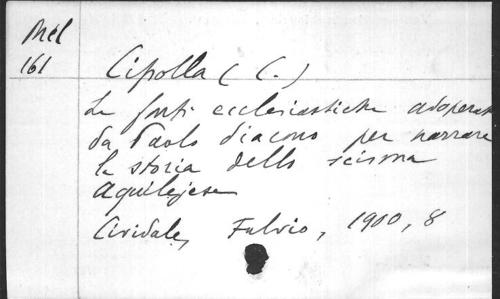 Mél
161
Cipolla (C.)
Le fonti ecclesiastiche adoperate
da Paolo diacono per narrare
la storia dello scisma
aquilejese
Cividale, Fulvio, 1900, 8